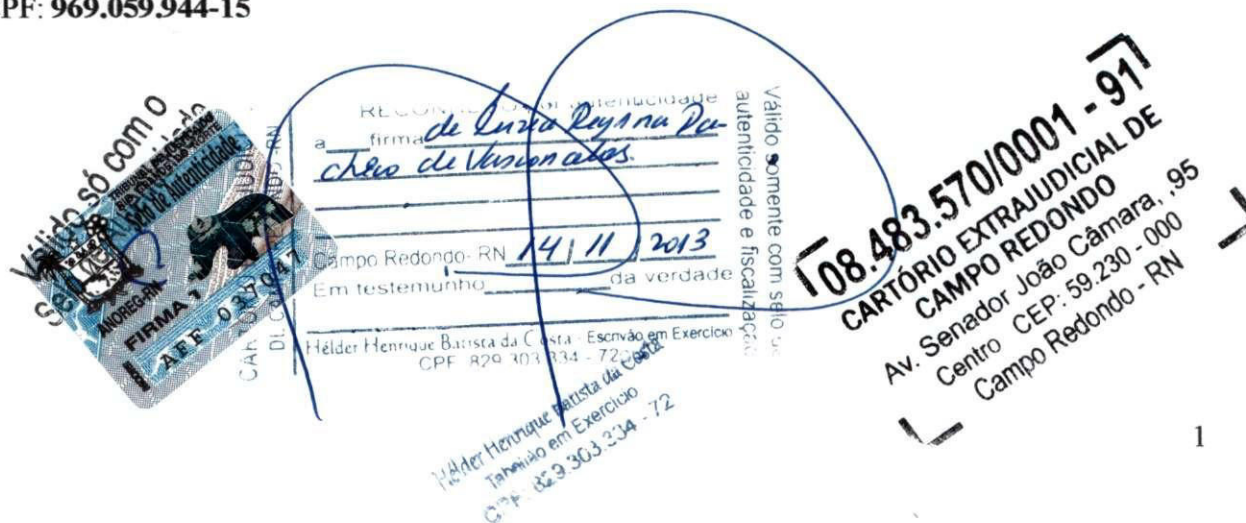 PF: 969.059.944-15
Válido só com o
Selo de Autenticidade
ANOREG-RN
FIRMA 1
AFF 037047
RECON autenticidade
a firma de Luzia Reynna Pa-
checo de Vasconcelos.
Campo Redondo-RN 14/11/2013
Em testemunho da verdade
Hélder Henrique Batista da Costa - Escrivão em Exercício
CPF 829 303 334 - 72
Válido somente com selo de
autenticidade e fiscalização
Hélder Henrique Batista da Costa
Tabelião em Exercício
CPF: 829.303.334 - 72
08.483.570/0001 - 91
CARTÓRIO EXTRAJUDICIAL DE
CAMPO REDONDO
Av. Senador João Câmara, ,95
Centro CEP: 59.230 - 000
Campo Redondo - RN
1